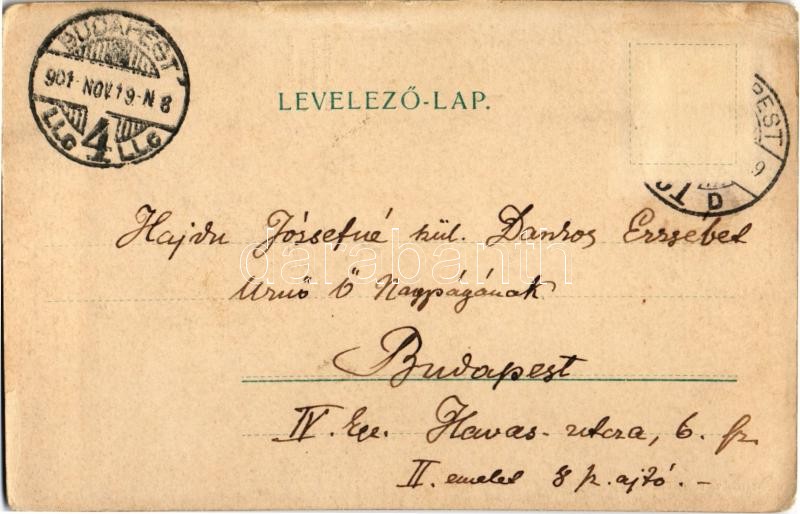 BUDAPEST
901-NOV 19-N 8
4
LEVELEZŐ-LAP.
PEST
9
D
Hajdu Józsefné kül. Dandog Erzsébet
darabanth
urnő ő Nagyságának
Budapest
IV. Ker. Havas-utcza, 6. sz.
II. emelet 8 p. ajtó.-